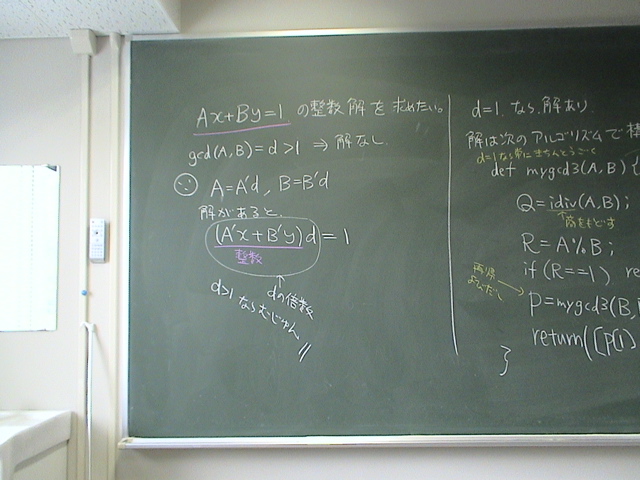 Ax+By=1 の整数解を求めたい。
gcd(A,B)=d>1 ⇒ 解なし
∵ A=A'd, B=B'd
解があると、
(A'x+B'y)d=1
整数
dの倍数
d>1 ならむじゅん
d=1 なら 解あり
解は次のアルゴリズムで
d=1なら常にきちんとうごく
def mygcd3(A,B){
Q=idiv(A,B);
商をもどす
R=A%B;
if(R==1) re
再帰
よびだし
p=mygcd3(B,
return([p[1]
}